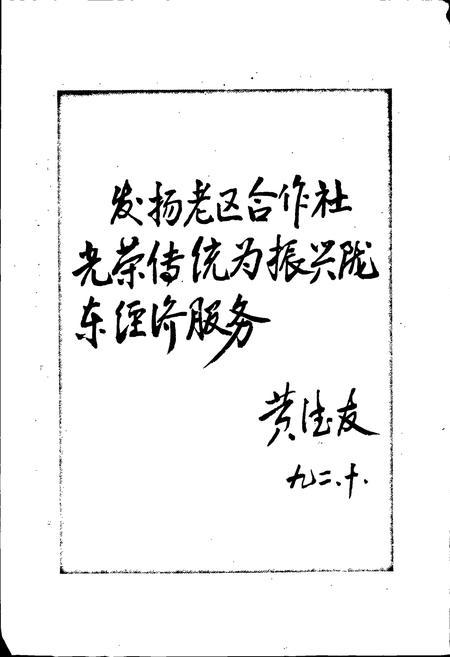 发扬老区合作社
光荣传统为振兴陇
东经济服务
黄德友
九二.十.